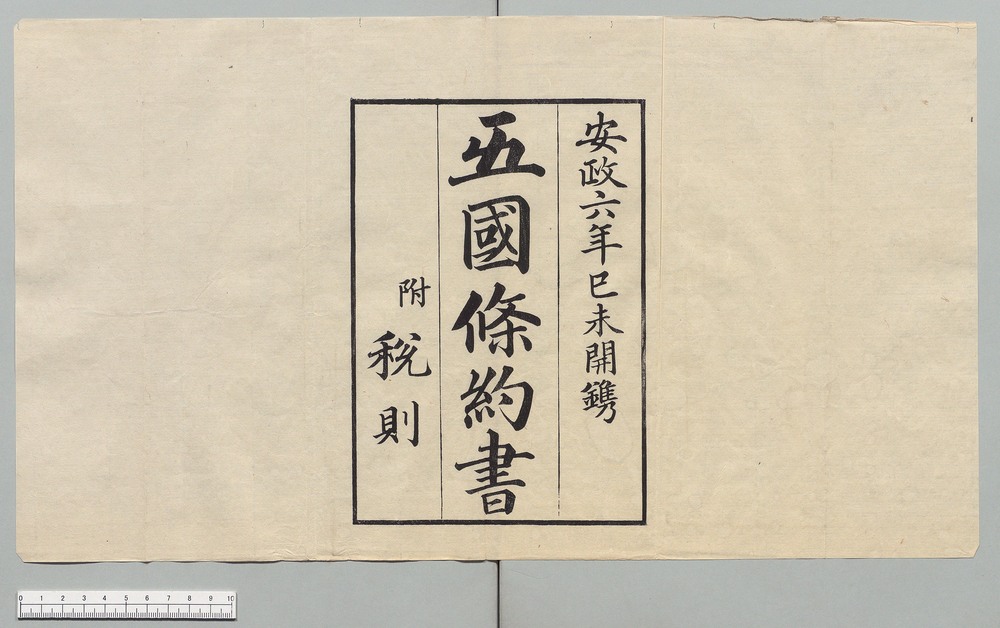 安政六年巳未開鐫
五國條約書
附
税則
0 1 2 3 4 5 6 7 8 9 10